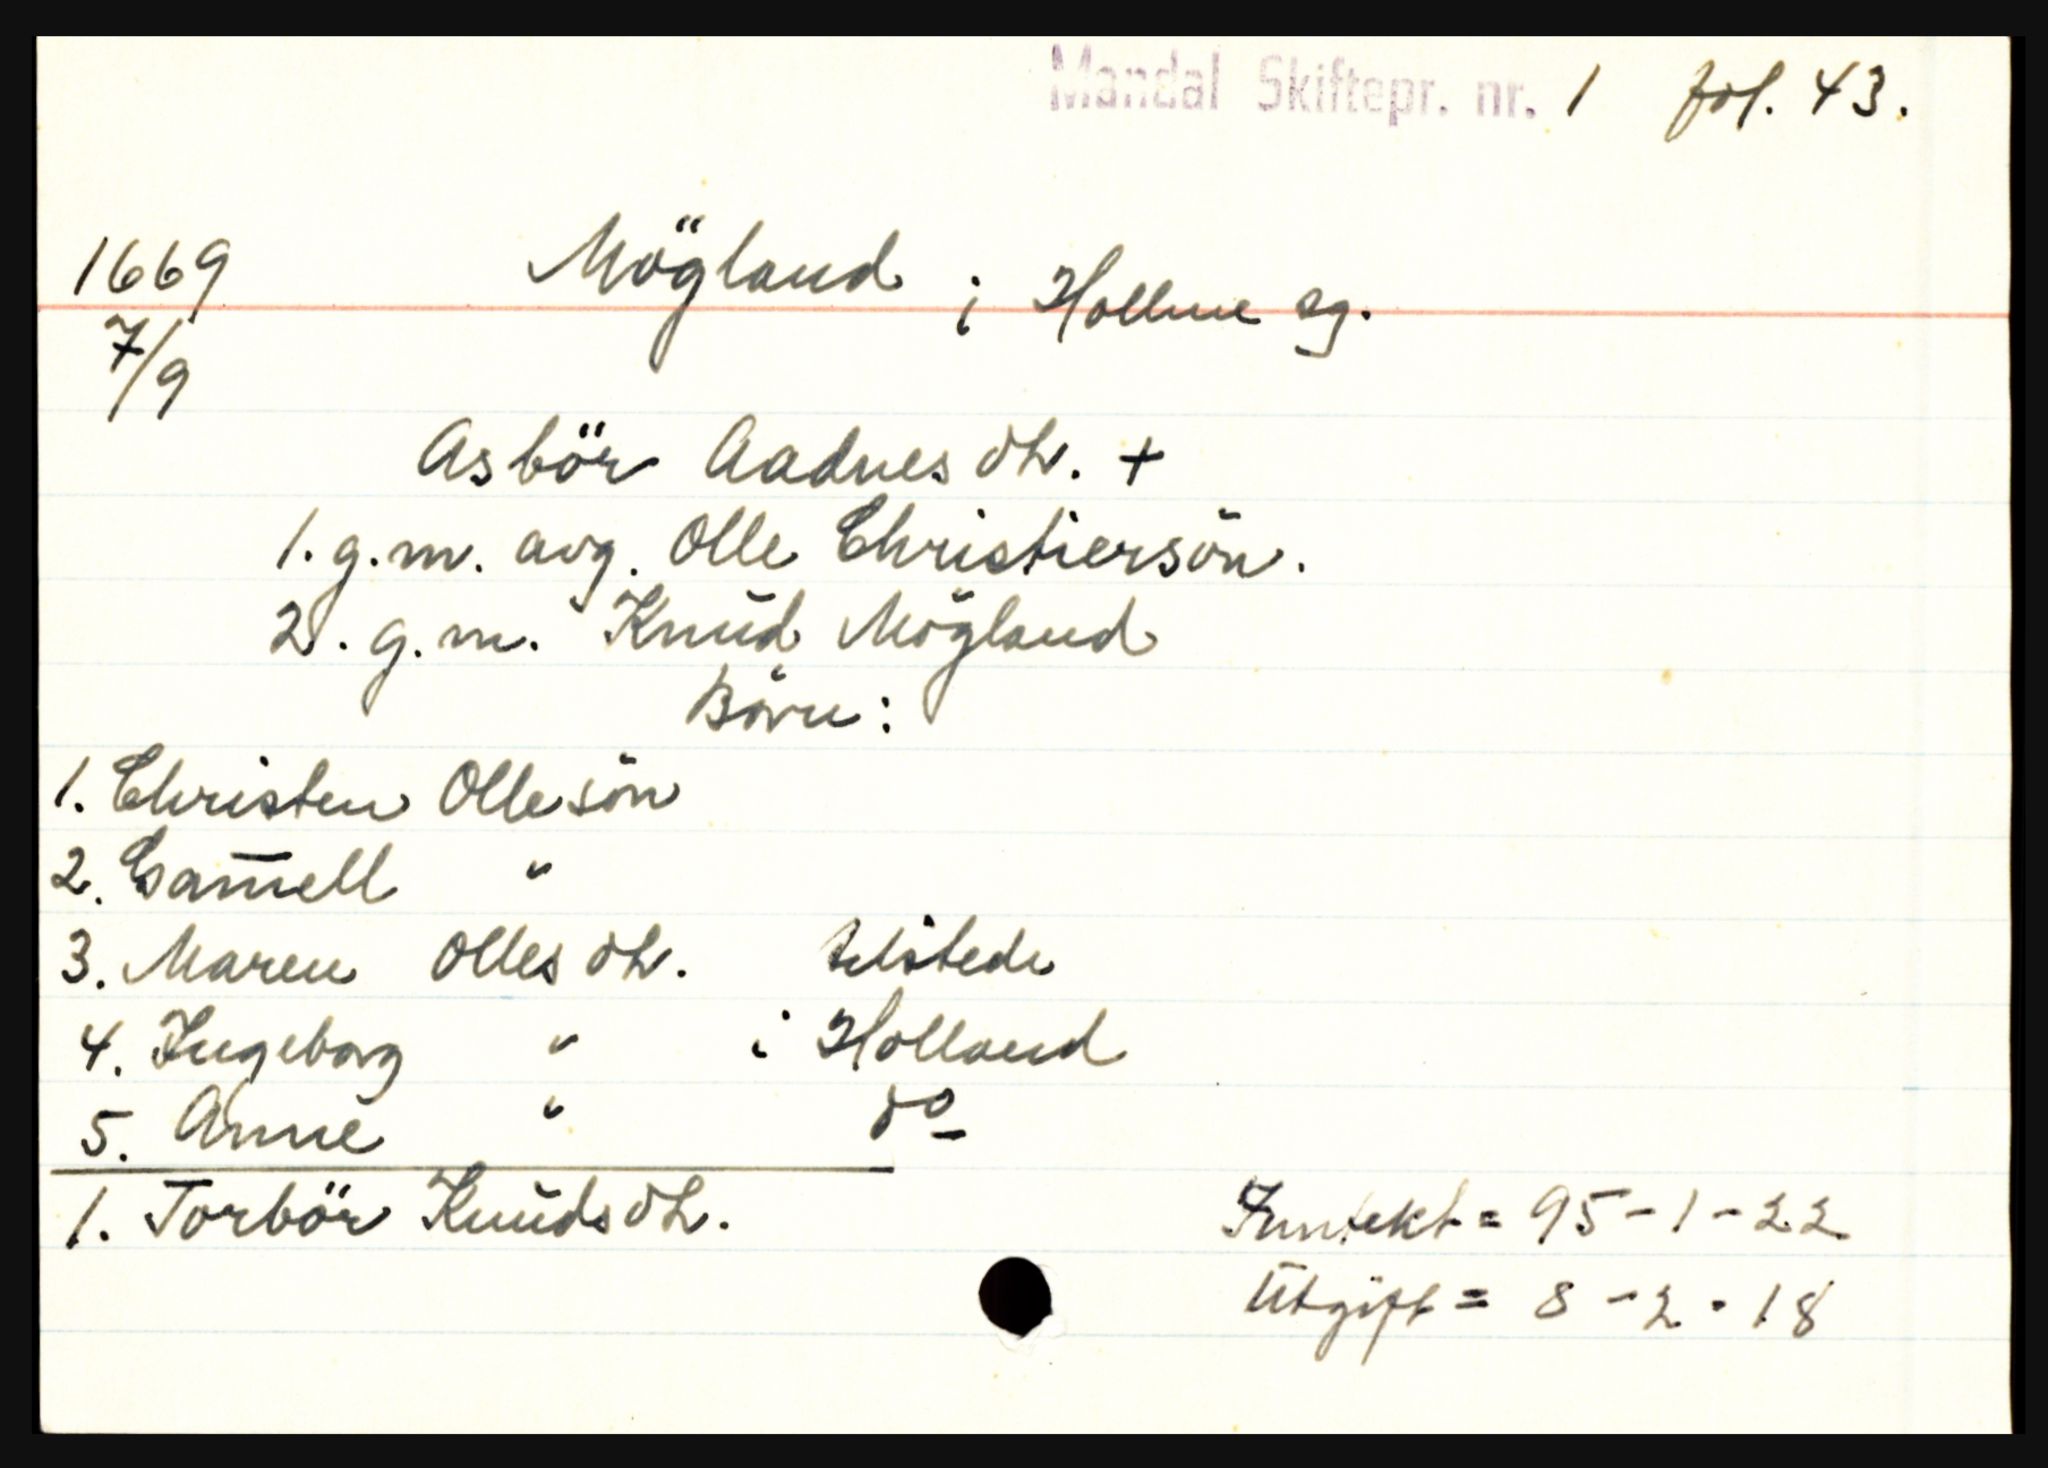 Mandal Skiftepr. nr. 1 fol. 43.
1669 Mögland i Hollme sg.
7/9
Asbör Aadnesdtr. +
1. g.m. avg. Olle Christiersön.
2. g.m. Knud Mögland
Börn:
1. Christen Ollesön
2. Gam̅ell "
3. Maren Ollesdtr. tilstede
4. Ingeborg " i Holland
5. Anne " do
1. Torbör Knudsdtr.
Inntekt = 95-1-22
Utgift = 8-2-18